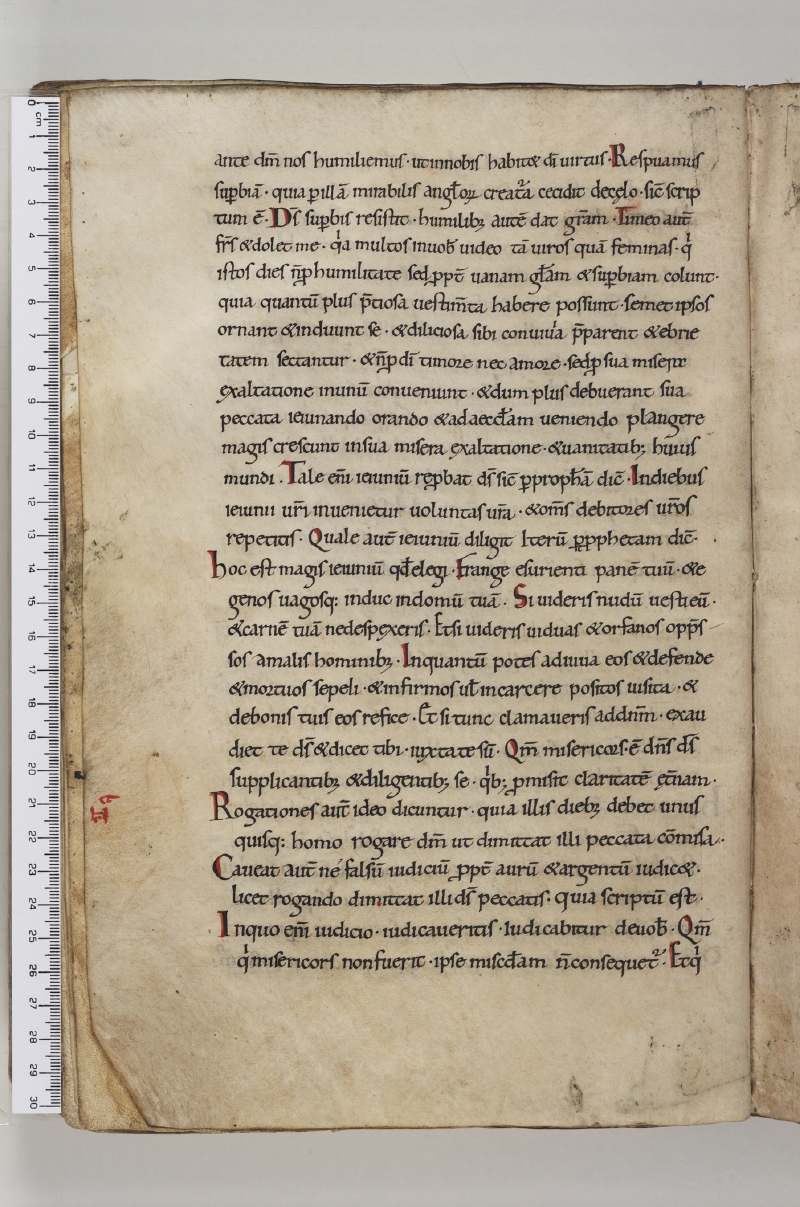 ante dm̄ nos humiliemus · ut innobis habit& dī uirtus · Respuamus
sup̱biā · quia p̱ illā mirabilis angl̄oꝝ creat̾a cecidit decęlo · sic̄ scrip
tum ē · Ds̄ sup̱bis resistit · humilib; autē dat gr̄am · Timeo aut̄
fr̄s & dolet me · qͥa multos inuob̄ uideo tā uiros quā feminas · qͥ
istos dies n̄ p̱ humilitate sed ꝓpt̄ uanam gl̄am & sup̱biam colunt ·
quia quantū plus p̄tiosa uestim̄ta habere possunt · semet ipsos
ornant & induunt se · & diliciosa sibi conuiuia p̄parent & ebrie
tatem sectantur · & n̄ p̱ dī timore nec amore · sed p̱ sua miserę
exaltatione inunū conueniunt · & dum plus debuerant sua
peccata ieiunando orando & ad aeccl̄am ueniendo plangere
magis crescunt insua misera exaltatione · & uanitatib; huius
mundi . Tale eni ieiuniū rep̱bat ds̄ sic̄ p̱ proph̄ā dic̄ · Indiebus
ieiunii ur̄i inuenietur uoluntas ur̄a · & om̄s debitores ur̄os
repetitis · Quale aut̄ ieiuniū diligit Iterū p̱ ꝓphetam dic̄ ·
hoc est magis ieiuniū qd̄ elegi · Frange esurienti panē tuū · & e
genos uagosq: induc indomū tuā . Si uideris nudū uesti eū ·
& carnē tuā nedespexeris · Et si uideris uiduas & orfanos opp̄s
sos a malis hominib; · Inquantū potes adiuua eos & defende
& mortuos sepeli · & infirmos ul̄ incarcere positos uisita · &
debonis tuis eos refice · Et si tunc clamaueris ad dnm̄ · exau
diet te ds̄ & dicet tibi · iuxta te sū . Qm̄ misericors · ē dn̄s ds̄
supplicantib; & diligentib; se · qͥb; ꝓmisit claritatē et̄nam ·
Rogationes aut̄ ideo dicuntur · quia illis dieb; debet unus
quisq: homo rogare dm̄ ut dimittat illi peccata cōmisa .
Caueat aut̄ né falsū iudiciū ꝓpt̄ aurū & argentū iudic& ·
licet rogando dimittat illi ds̄ peccatis : quia scriptū est ·
Inquo eni̅ iudicio · iudicaueritis · Iudicabitur deuob̄ · Qm̄
qͥ misericors nonfuerit · ipse miscd̄am n̄ consequet᷑ · Et qͥ